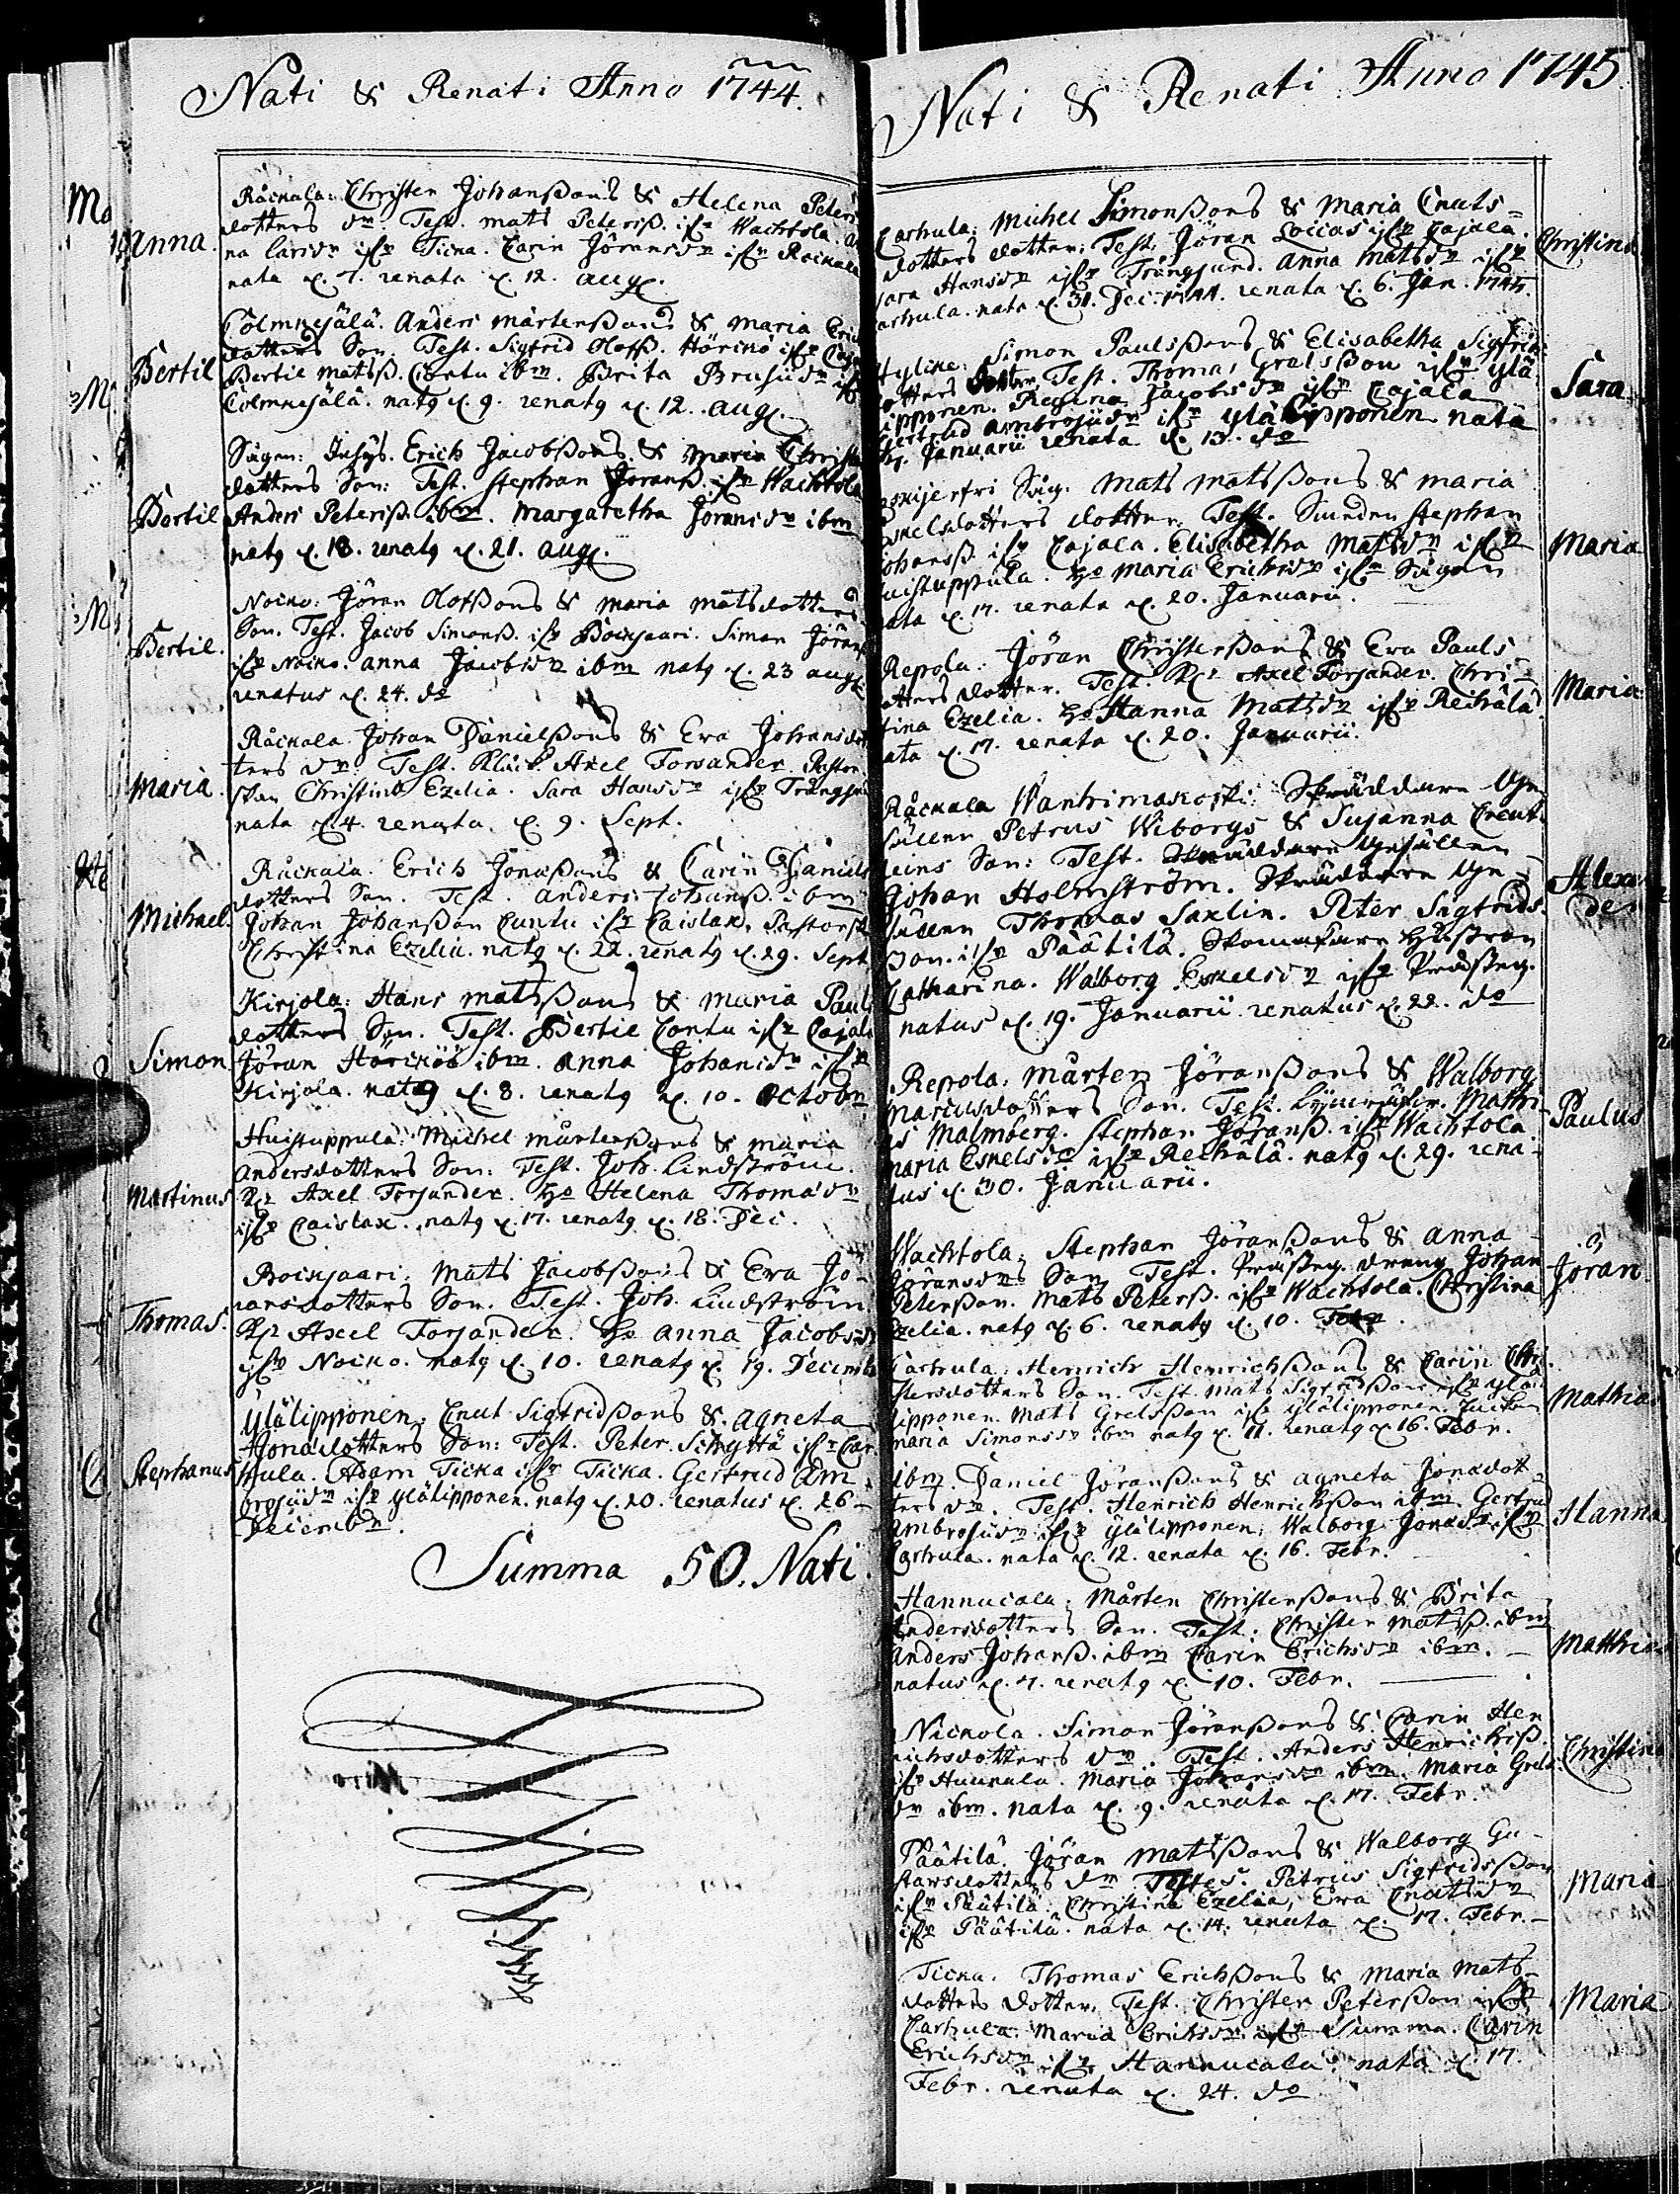 Nati & Renati Anno 1744.
Anna.
Råckala: Christer Johanßons & Helena Peters
dotters dr. Test. mats Petersß. ifr Wachtola. An
na larsdr ifr Ticka. Carin Jöransdr ifr Råckala
nata d. 7. renata d. 12. aug.
Bertil
Colmkesälä. Anders mårtenßons & maria Erics
dotters Son. Test. Sigfrid Olofß. Hörckö ifr
Bertil matsß. Contu ibm. Brita Brusiidr ifr
Colmkesälä. natg d. 9. renatg d. 12. aug.
Bertil
Sågen: Erich Jacobßons & maria Christers
dotters Son: Test. Stephan Jöransß. ifr Wachtola
Anders Petersß. ibm. Margaretha Jöransdr ibm
natg d. 18. renatg d. 21. aug.
Bertil.
Nocko: Jöran Olofßons & maria matsdotters
Son. Test. Jacob Simonß. ifr Boickjaari. Simon Jöranß
ifr Nocko. anna Jacobsdr ibm natg d. 23 aug
renatus d. 24. do
Maria.
Råckala Johan Danielßons & Eva Johansdot
ters dr. Test. Kläck. Axel Forsander. Pastor
skan Christina Ezelia. Sara Hansdr ifr Trångsund
nata d. 4. renata d. 9. Sept.
Michael.
Råckala. Erich Jönasßons & Carin Daniels
dotters Son. Test. anders Johansß. ibm
Johan Johanßon Cuntu ifr Caislax. Pastorsk.
Christina Ezelia. natg d. 22. renatg d. 29. Sept
Simon
Kirjola: Hans matsßons & maria Pauls
dotters Son. Test. Bertil Contu ifr Cajala
Jöran Hörcköö ibm. anna Johansdr ifr
Kirjola. natg d. 8. renatg d. 10. Octobr
Martinus
Huistuppula: Michel mårtenßons & maria
andersdotters Son: Test. Joh. Lindström.
Kl. Axel Forsander. Ho Helena Thomasdr
ifr Caislax. natg d. 17. renatg d. 18. Dec.
Thomas.
Boickjaari: Mats Jacobßons & Eva Jö-
ransdotters Son. Test. Joh. Lindström
Kl. Axel Forsander. Ho anna Jacobsdr
ifr Nocko. natg d. 10. renatg d. 19. Decemb
Stephanus
Ylälipponen. Cnut Sigfridßons & agneta
Jönasdotters Son: Test. Peter Schyttä ifr Car
hula. Adam Ticka ifr Ticka. Gertrud Am
brosiidr ifr Ylälipponen. natg d. 20. renatus d. 26 -
Decembr.
Summa 50. Nati.
Nati & Renati Anno 1745
Carhula: Michel Simonßons & Maria Cnuts=
dotters dotter: Test. Jöran Loccas ifr Cajala.
Sara Hansdr ifr Trångsund. anna Matsdr ifr
Carhula. nata d. 31. Dec. 1744. renata d. 6. Jan. 1745.
Christina
Hylike: Simon Paulsßons & Elisabetha Sigfrids
dotters dotter. Test. Thomas Gralsßon ifr ylä
lipponen. Regina Jacobsdr ifr Cajala
Gertrud ambrosiidr ifr ylälipponen nata
Januarii renata d. 13. do
Sara
Såg. Mats matsßons & maria
Eskelsdotters dotter. Test. Smeden Stephan
Johansß ifr Cajala. Elisabetha Matsdr ifr
Huistuppula. Ho Maria Erichsdr ifr Sågen
nata d. 17. renata d. 20. Januarii.
Maria
Repola: Jöran Christerßons & Eva Pauls
dotters dotter. Test. Kl. Axel Forsander. Chri-
stina Ezelia. Ho Hanna Matsdr ifr Reckälä
nata d. 17. renata d. 20. Januarii.
Maria
Råckala Wanhimakoski: Skräddare Ge
sällen Petrus Wiborgs & Susanna Creut
leins Son: Test. Skräddare Gesällen
Johan Holmström. Skräddare Ge-
sällen Thomas Saxlin. Peter Sigfrids
ßon ifr Päätilä. Skomakare Hustrun
Catharina. Walborg Eskelsdr ifr Prästeg.
natus d. 19. Januarii renatus d. 22. do
Alexan
der
Repola: Mårten Jöranßons & Walborg
Marcusdotters Son. Test. Mathi
as Malmberg. Stephan Jöransß. ifr Wachtola
maria Eskelsdr ifr Reckälä. natg d. 29. rena-
tus d. 30. Januarii.
Paulus
Wachtola: Stephan Jöranßons & anna
Jöransdrs Son Test. Prästeg. dräng Johan
Peterßon. Mats Petersß. ifr Wachtola. Christina
Ezelia. natg d. 6. renatg d. 10. Febr.
Jöran
Carhula: Henrich Henrichßons & Carin Chri-
stersdotters Son. Test. Mats Sigfridßon ifr ylä
lipponen. Mats Grelsßon ifr ylälipponen.
maria Simonsdr ibm natg d. 11. renatg d. 16. Febr.
Mathias
ibm. Daniel Jöranßons & agneta Jönsdot-
ters dr. Test. Henrich Henrichßon ibm. Gertrud
ambrosiidr ifr ylälipponen. Walborg Jonasdr ifr
Carhula. nata d. 12. renata d. 16. Febr.
Hanna
Hannucala. Mårten Christerßons & Brita
Andersdotters Son. Test. Christer matsß. ibm
Anders Johansß. ibm Carin Erichsdr ibm. -
natus d. 7. renatg d. 10. Febr.
Matthias
Nickola. Simon Jöranßons & Carin Hen
richsdotters dr. Test. Anders Henrichsß.
ifr Huunala. Maria Johansdr ibm. Maria Grels
dr ibm. nata d. 9. renata d. 17. Febr.
Christina
Päätilä. Jöran matsßons & Walborg Gu-
stavsdotters dr Testes. Petrus Sigfridsßon
ifr Päätilä. Christina Ezelia, Eva Cnutsdr
ifr Päätilä. nata d. 14. renata d. 17. Febr. -
Maria
Ticka. Thomas Erichßons & Maria Mats-
dotters dotter. Test. Christer Peterßon ifr
Carhula. Maria Erichsdr ifr Summa. Carin
Erichsdr ifr Hannucala. nata d. 17.
Febr. renata d. 24. do
Maria